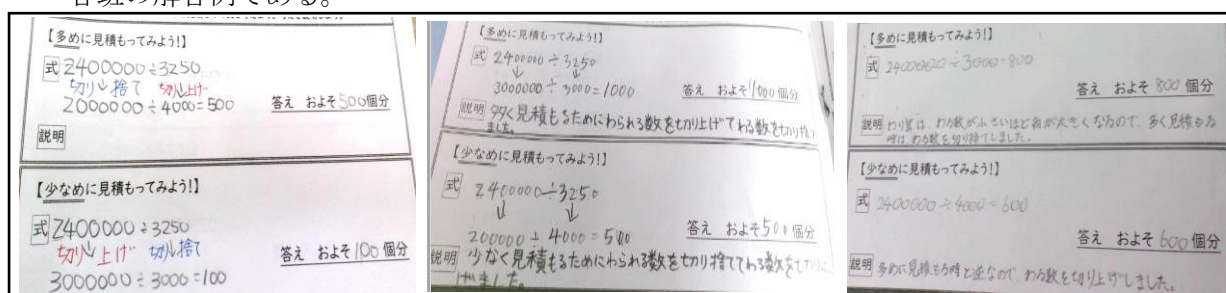 各班の解答例である。
【多めに見積もってみよう!】
式 2400000÷3250
切り捨て 切り上げ
2000000÷4000=500
答え およそ500個分
説明
【少なめに見積もってみよう!】
式 2400000÷3250
切り上げ 切り捨て
答え およそ100個分
3000000÷3000=100
【多めに見積もってみよう!】
式 2400000÷3250
3000000÷3000=1000
答え およそ1000個分
説明 多く見積もるためにわられる数を切り上げてわる数を切り捨て
ました。
【少なめに見積もってみよう!】
式 2400000÷3250
200000÷4000=500
答え およそ500個分
説明 少なく見積もるためにわられる数を切り捨ててわる数を切り上
げました。
【多めに見積もってみよう!】
式 2400000÷3000=800
答え およそ800個分
説明 わり算は、わる数が小さいほど商が大きくなるので、多く見積もる
時は、わる数を切り捨てしました。
【少なめに見積もってみよう!】
式 2400000÷4000=600
答え およそ600個分
説明 多めに見積もる時と逆なので、わる数を切り上げしました。